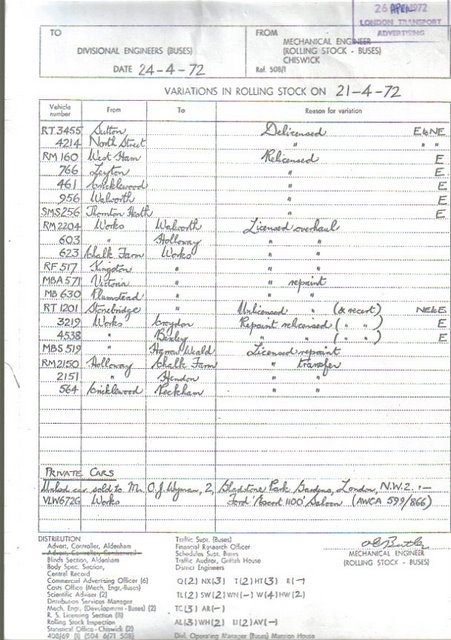 26 APR 1972
LONDON TRANSPORT
ADVERTISING
TO
DIVISIONAL ENGINEERS (BUSES)
DATE 24-4-72
FROM
MECHANICAL ENGINEER
(ROLLING STOCK - BUSES)
CHISWICK
Ref. 508/1
VARIATIONS IN ROLLING STOCK ON 21-4-72
Vehicle number From To Reason for variation
RT 3455 Sutton Delicensed E & NE
4214 North Street " " "
RM 160 West Ham Relicensed E
766 Leyton " E
461 Cricklewood " E
956 Walworth " E
SMS 256 Thornton Heath " E
RM 2204 Works Walworth Licensed overhaul
603 " Holloway " "
623 Chalk Farm Works " "
RF 517 Kingston " " "
MBA 571 Victoria " " repaint
MB 630 Plumstead " " "
RT 1201 Stonebridge " Unlicensed " (& recert) NE & E
3219 Works Croydon Repaint relicensed ( " " ) E
4538 " Bexley " " ( " " ) E
MBS 519 " Harrow Weald Licensed repaint
RM 2150 Holloway Chalk Farm " transfer
2151 " Hendon " "
564 Cricklewood Peckham " "
PRIVATE CARS
Unlicd car sold to Mr. O.J. Wyman, 2, Gladstone Park Gardens, London, N.W.2. :-
VLW 672G Works Ford 'Escort 1100' Saloon (AWCA 599/866)
DISTRIBUTION
Advert. Controller, Aldenham
Blinds Section, Aldenham
Body Spec. Section,
Central Record
Commercial Advertising Officer (6)
Costs Office (Mech. Engr-Buses)
Scientific Adviser (2)
Distribution Services Manager
Mech. Engr. (Development - Buses) (2)
R. S. Licensing Section (8)
Rolling Stock Inspection
Statistical Office - Chiswick (2)
408/69 (1) (504 6/71 508)
Traffic Supt. (Buses)
Financial Research Officer
Schedules Supt. Buses
Traffic Auditor, Griffith House
District Engineers
Q (2) NX (3) T (2) HT (3) E (-)
TL (2) SW (2) WN (-) W (4) HW (2)
TC (3) AR (-)
AL (3) WH (2) U (2) AV (-)
Divl. Operating Manager (Buses) Mansion House
MECHANICAL ENGINEER
(ROLLING STOCK - BUSES)